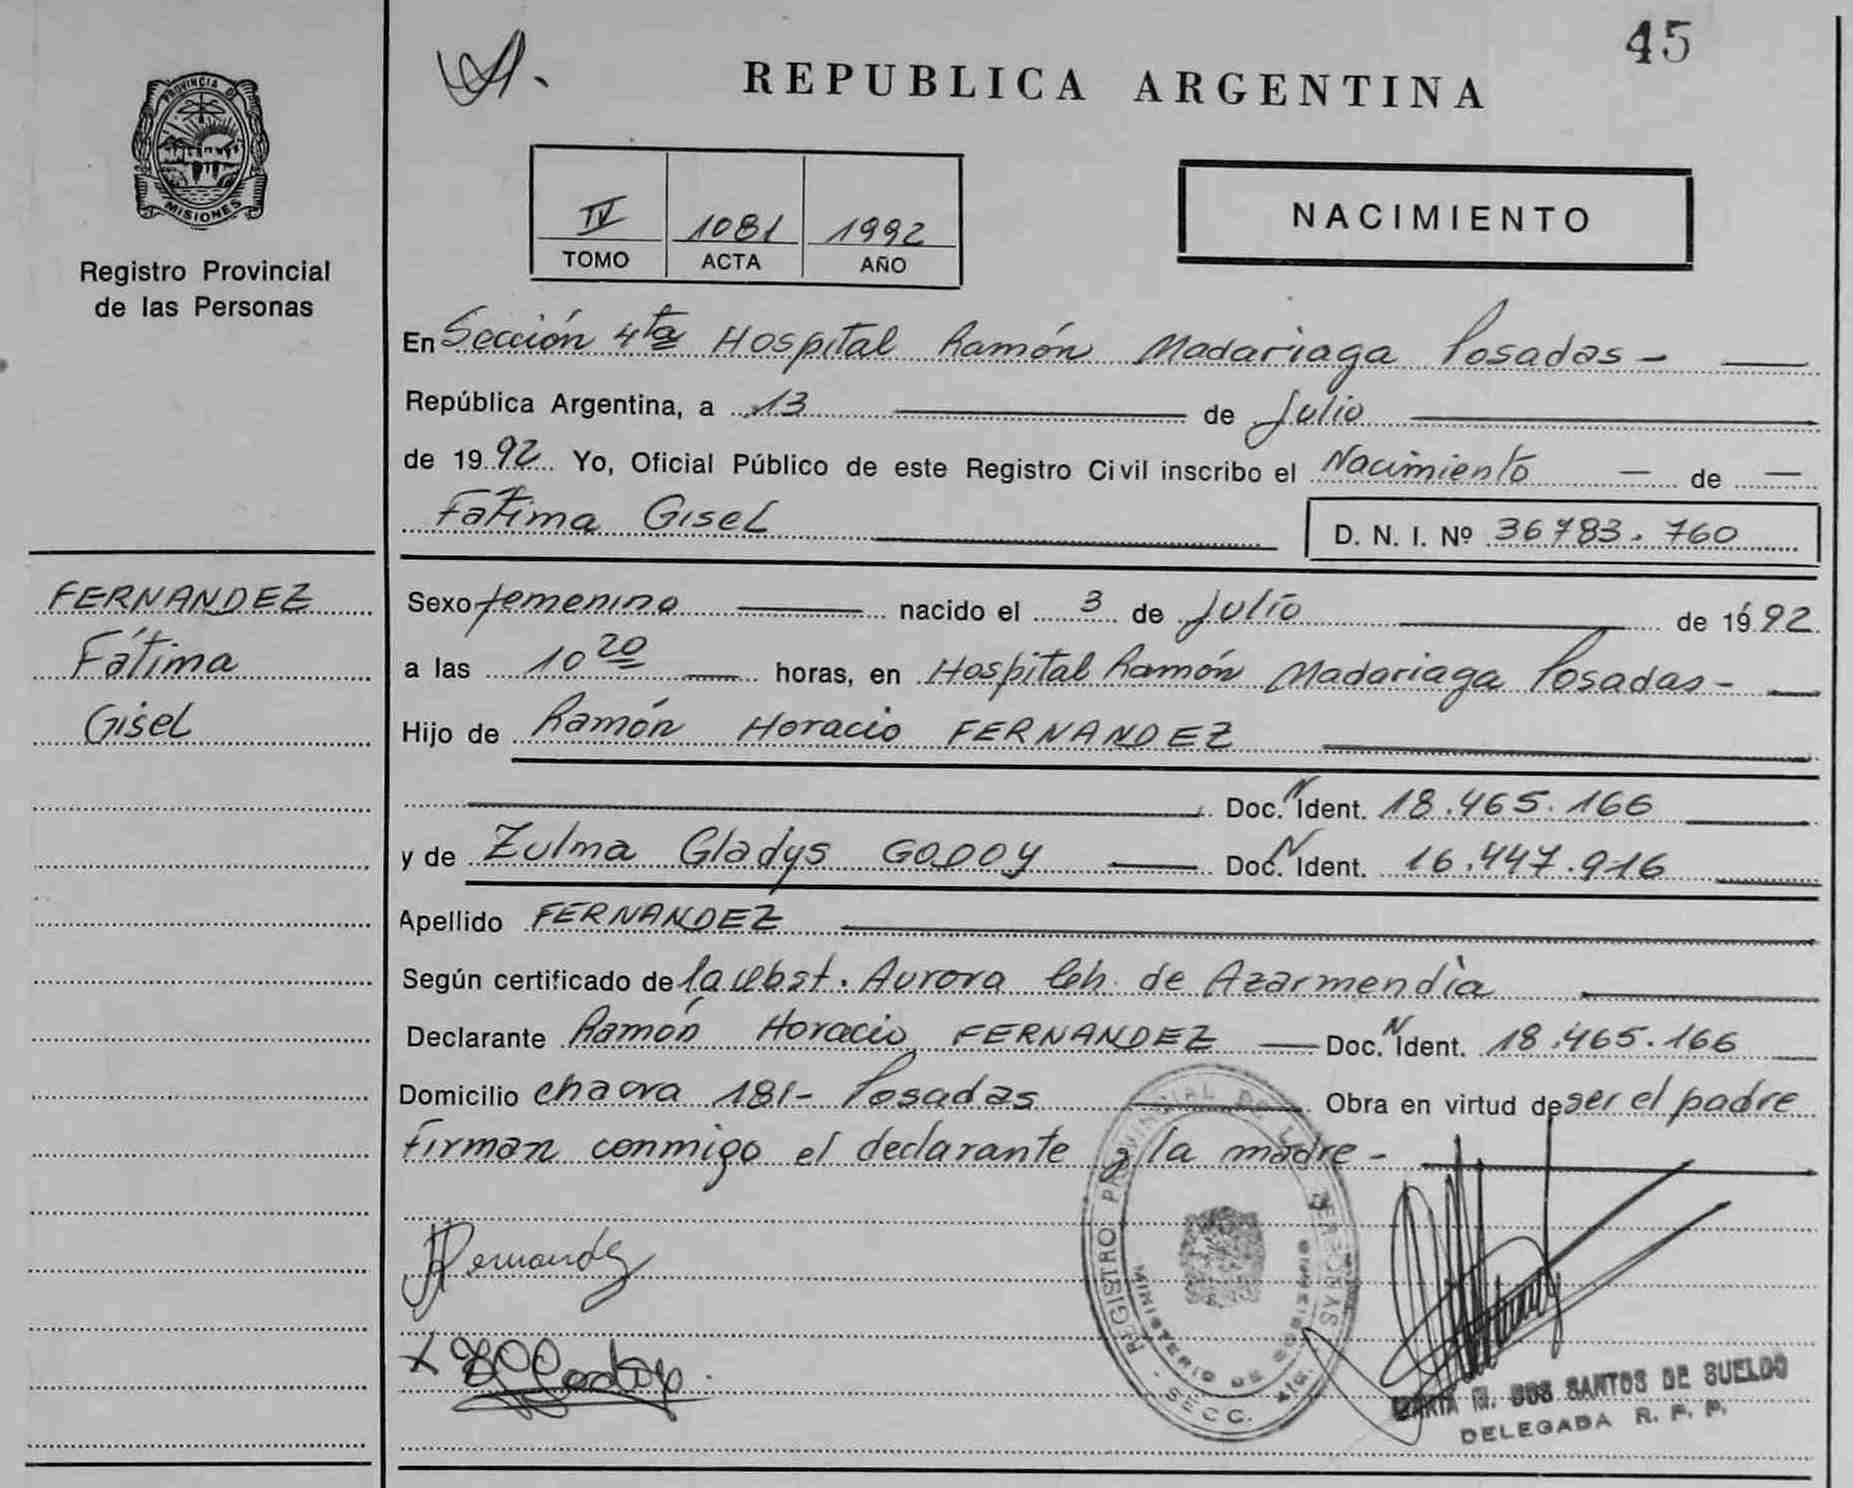 45
REPUBLICA ARGENTINA
PROVINCIA DE
MISIONES
Registro Provincial
de las Personas
IV 1081 1992
TOMO ACTA AÑO
NACIMIENTO
En Sección 4ta Hospital Ramón Madariaga Posadas -
República Argentina, a 13 de Julio
de 1992 Yo, Oficial Público de este Registro Civil inscribo el Nacimiento - de -
Fatima Gisel D. N. I. Nº 36783.760
FERNANDEZ
Fátima
Gisel
Sexo femenino nacido el 3 de Julio de 1992
a las 10 20 horas, en Hospital Ramón Madariaga Posadas -
Hijo de Ramón Horacio FERNANDEZ
Doc. N Ident. 18.465.166
y de Zulma Gladys GODOY Doc. N Ident. 16.447.916
Apellido FERNANDEZ
Según certificado de la obst. Aurora de Azarmendia
Declarante Ramón Horacio FERNANDEZ Doc. N Ident. 18.465.166
Domicilio chacra 181 - Posadas Obra en virtud de ser el padre
Firman conmigo el declarante y la madre -
REGISTRO PROVINCIAL DE LAS PERSONAS
MINISTERIO DE GOBIERNO
SECC.
Fernandez
x Godoy
MARIA M. DOS SANTOS DE SUELDO
DELEGADA R. P. P.